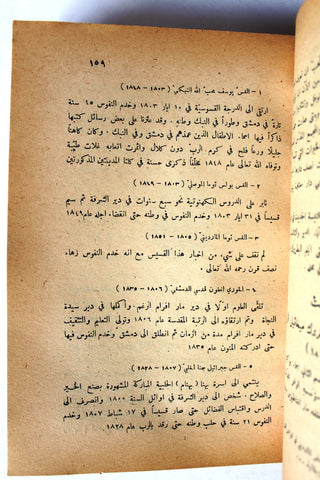 ١٥٩
١ – القس يوسف هب الله النبكي (١٨٠٣ – ١٨٤٨)
ارتقى الى الدرجة القسوسية في ١٠ ايار ١٨٠٣ وخدم النفوس ٤٥ سنة
تارة في دمشق وطوراً في النبك وطنه . وقد عثرنا على بعض رسائل كتبها
ذاكراً فيها اسماء الاطفال الذين عمدهم في دمشق والنبك . وكان كاهناً
جليلاً ورعاً فلح في كرم الرب دون كلل واثمرت اتعابه غلات طيبة
وتوفاه الله تعالى عام ١٨٤٨ مخلفاً ذكرى حسنة في كلتا المدينتين المذكورتين
٢ – القس بولس توما الموصلي (١٨٠٣ – ١٨٤٩)
ثابر على الدروس الكهنوتية نحو سبع سنوات في دير الشرفة ثم سيم
قسيساً في ٣١ ايار ١٨٠٣ وخدم النفوس في وطنه حتى انقضاء اجله عام ١٨٤٩
٣ – القس توما المارديني (١٨٠٥ – ١٨٥١)
لم نقف على شيء من اخبار هذا القسيس مع انه خدم النفوس زهاء
نصف قرن رحمه الله تعالى .
٤ – الخوري انطون قدسي الدمشقي (١٨٠٦ – ١٨٣٥)
تلقى العلوم اولاً في دير مار افرام الرغم . واكملها في دير سيدة
النجاة وتم ارتقاؤه الى الرتبة المقدسة عام ١٨٠٦ وتولى التعليم والتثقيف
في دير مار افرام مدة من الزمان ثم انطلق الى دمشق وخدم النفوس فيها
حتى ادركته المنون عام ١٨٣٥
٥ – القس جبرائيل حنا الحلبي (١٨٠٧ – ١٨٢٨)
ينتمي الى اسرة بهنا (بهنام) الحلبية المباركة المشهورة بصنع الخير
والصلاح . شخص الى دير الشرفة في اوائل السنة ١٨٠٠ وانصرف الى
الدرس واقتباس الفضائل حتى صار قسيساً في ١٧ شباط ١٨٠٧ وخدم
النفوس ٢١ سنة في حلب وطنه حتى رقد بالرب عام ١٨٢٨